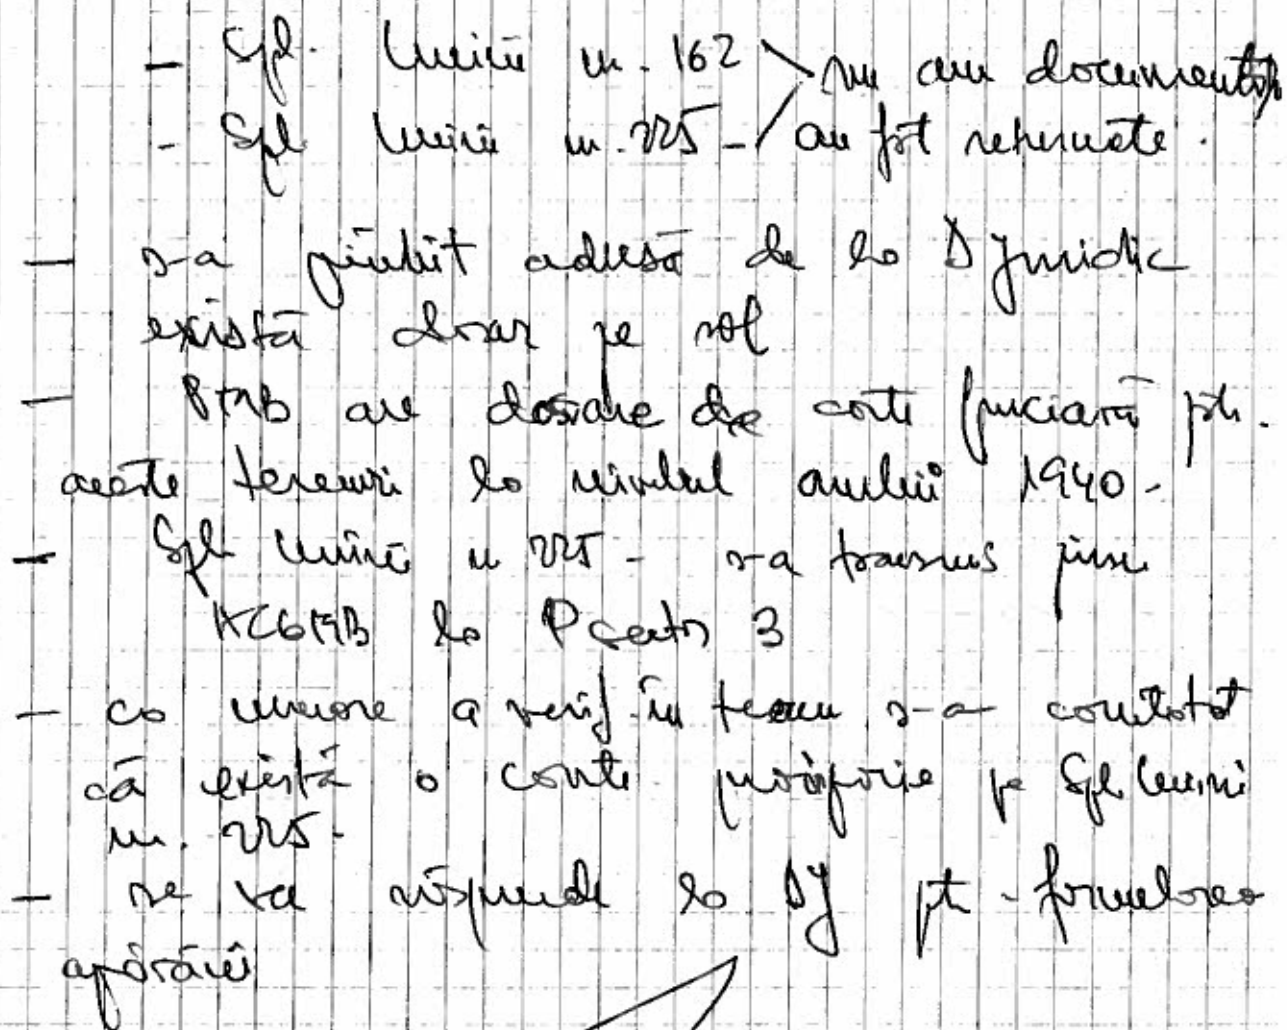 - Spl. Unirii nr. 162 nu am documente
- Spl Unirii nr. 225 - au fost returnate.
- s-a primit adresă de la D Juridic
există dosar pe rol
- PMB are dosare de carte funciară ptr.
aceste terenuri la nivelul anului 1940.
- Spl Unirii nr 225 - s-a transmis prin
HCGMB la P Sector 3
- ca urmare a verif în teren s-a constatat
că există o curte pe Spl. Unirii
nr. 225.
- se va răspunde la DJ pt. formularea
apărării